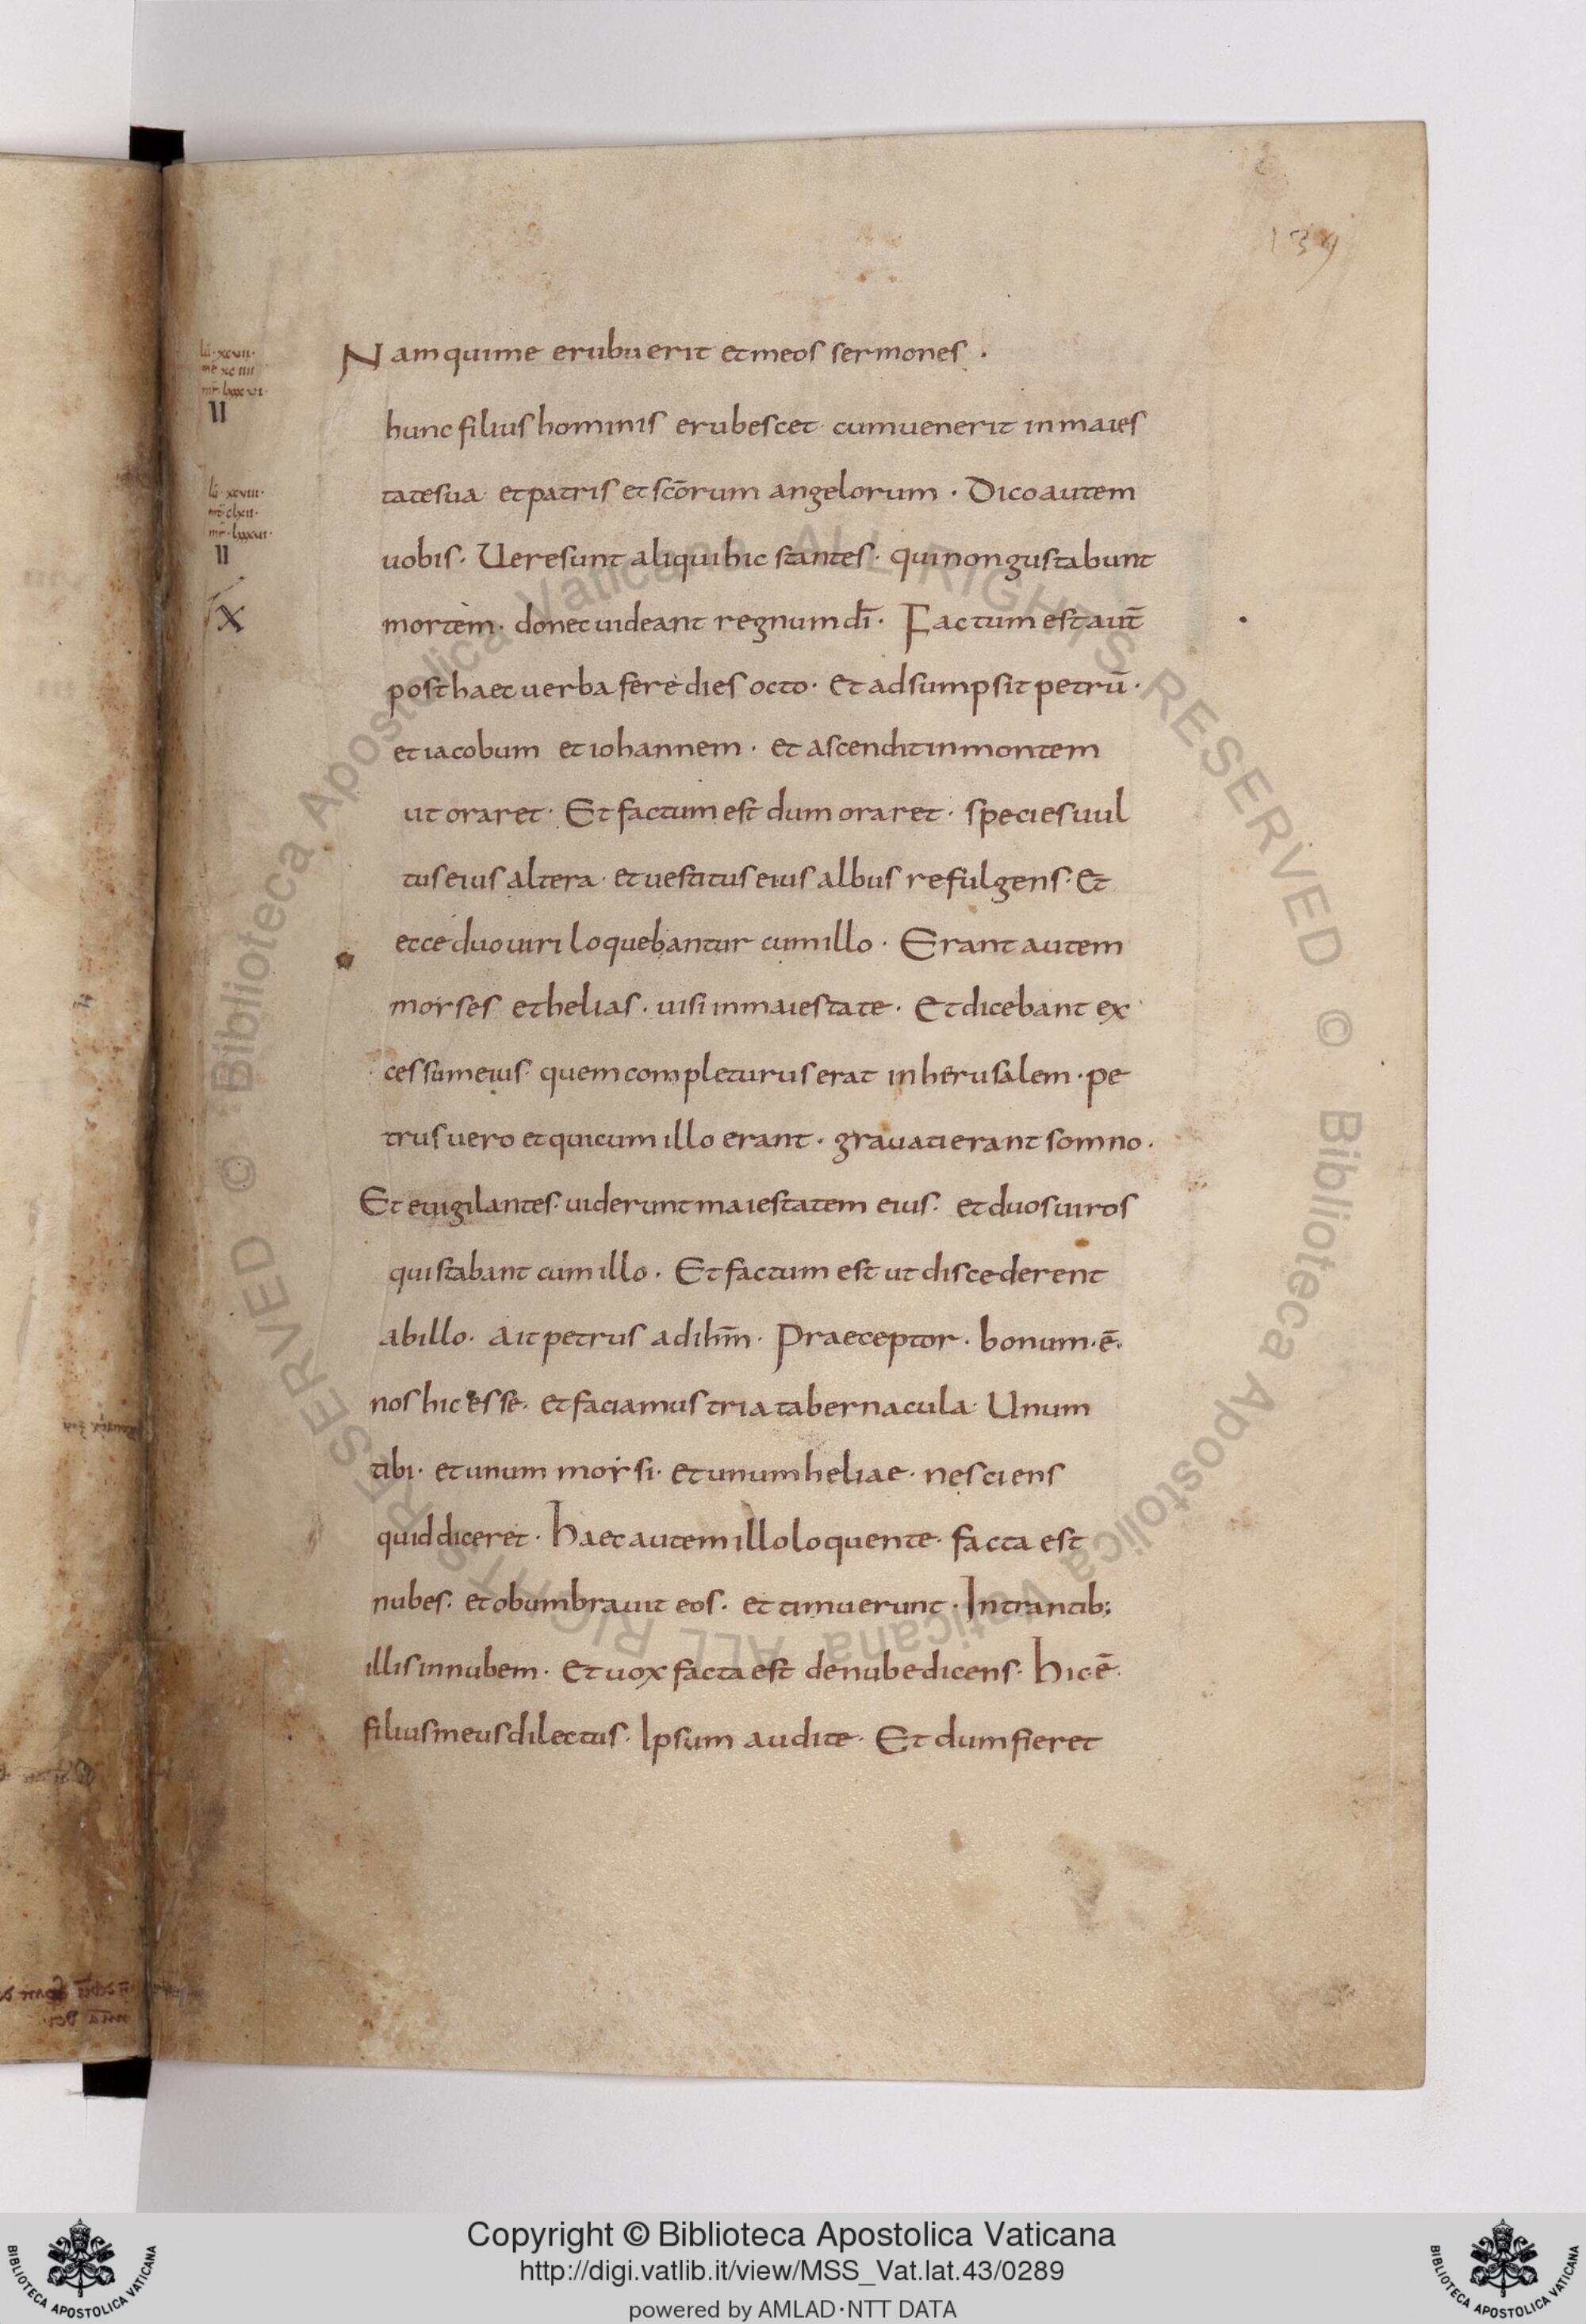 139
Nam qui me erubuerit et meos sermones ·
lū · xcuii ·
mt̄ xciiii
mr̄ · lxxxui ·
II
hunc filius hominis erubescet · cum uenerit in maies
tate sua · et patris et scōrum angelorum · Dico autem
lū · xcuiii ·
mt̄ clxii ·
mr̄ · lxxxuii ·
II
uobis · Uere sunt aliqui hic stantes · qui non gustabunt
X
mortem · donec uideant regnum dī · Factum est aut̄
post haec uerba fere dies octo · Et adsumpsit petrū ·
et iacobum et iohannem · et ascendit in montem
ut oraret · Et factum est dum oraret · species uul
tus eius altera · et uestitus eius albus refulgens · Et
ecce duo uiri loquebantur cum illo · Erant autem
moyses et helias · uisi in maiestate · Et dicebant ex
cessum eius · quem completurus erat in herusalem · pe
trus uero et qui cum illo erant · grauati erant somno ·
Et euigilantes · uiderunt maiestatem eius · et duos uiros
qui stabant cum illo · Et factum est ut discederent
ab illo · Ait petrus ad ihm̄ · Praeceptor · bonum · ē ·
nos hic esse · et faciamus tria tabernacula · Unum
tibi · et unum moysi · et unum heliae · nesciens
quid diceret · haec autem illo loquente · facta est
nubes · et obumbrauit eos · et timuerunt · Intrantib;
illis in nubem · Et uox facta est de nube dicens · hic ē ·
filius meus dilectus · Ipsum audite · Et dum fieret
© Biblioteca Apostolica Vaticana ALL RIGHTS RESERVED © Biblioteca Apostolica Vaticana ALL RIGHTS RESERVED
Copyright © Biblioteca Apostolica Vaticana
http://digi.vatlib.it/view/MSS_Vat.lat.43/0289
powered by AMLAD·NTT DATA
BIBLIOTECA APOSTOLICA VATICANA
BIBLIOTECA APOSTOLICA VATICANA